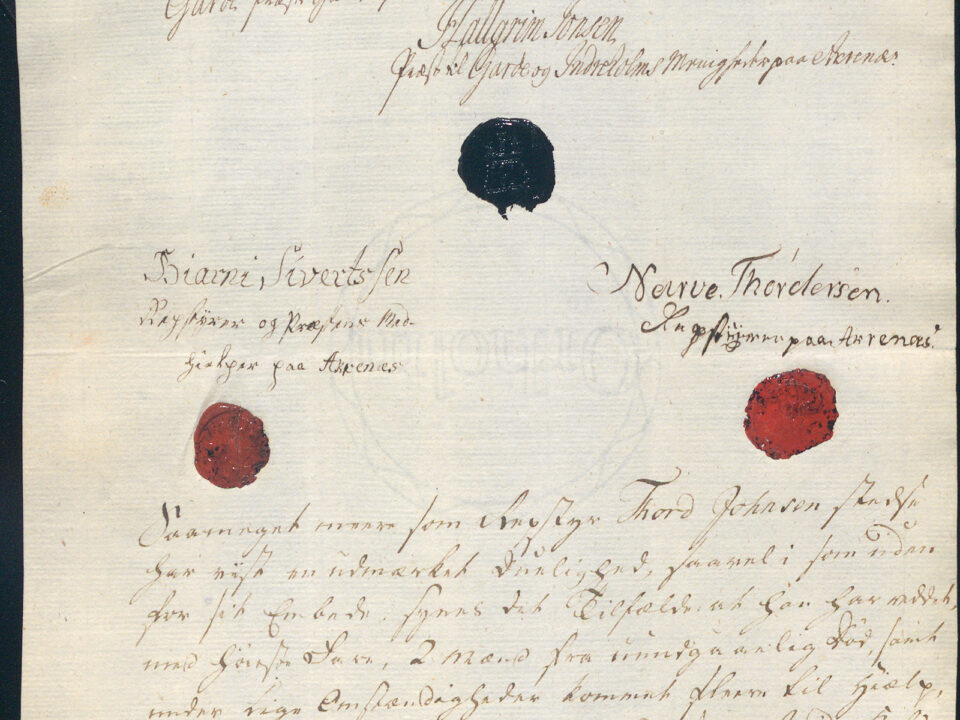 Garde
Hallgrim Jonsen
Præst til Garde og Indreholms Meenigheder paa Akrenæs.
Biarni Sivertssen
Repstyrer og Præstens Med-
hielper paa Akrenæs
Narve Thordersen.
Repstyrer paa Akrenæs.
Saameget meere som Repstyr Thord Johnsen stedse
har viist en udmærket Duelighed, saavel i som uden
for sit Embede, synes det Tilfælde, at han har reddet,
med højeste Fare, 2 Mænd fra uundgaaelig Død, samt
under lige Omstændigheder kommet fleere til Hielp,